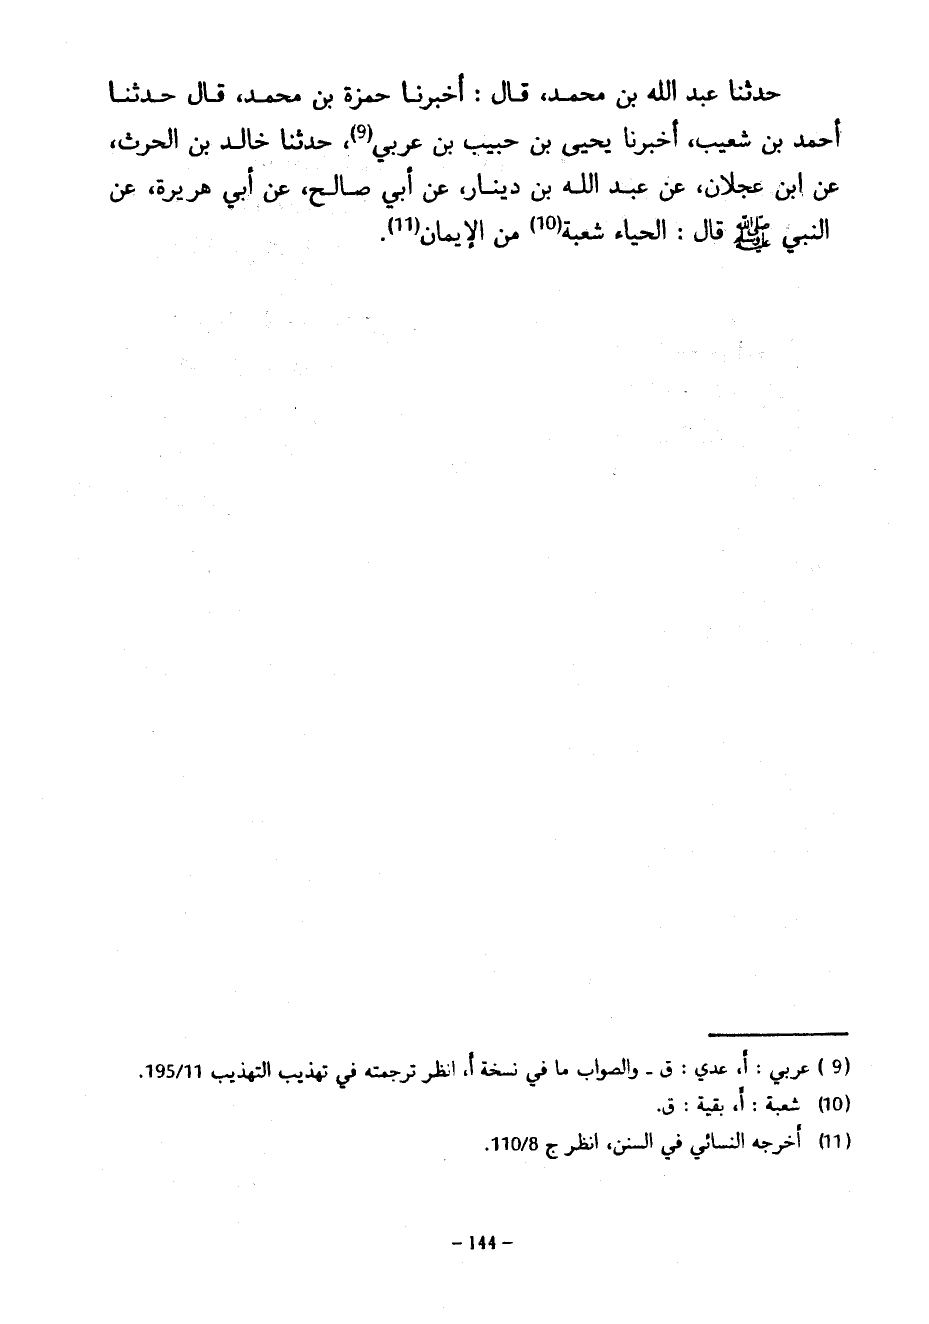 حدثنا عبد الله بن محمد، قال : أخبرنا حمزة بن محمد، قال حدثنا
أحمد بن شعيب، أخبرنا يحيى بن حبيب بن عربي(9)، حدثنا خالد بن الحرث،
عن ابن عجلان، عن عبد الله بن دينار، عن أبي صالح، عن أبي هريرة، عن
النبي ﷺ قال : الحياء شعبة(10) من الإيمان(11).
(9 ) عربي : أ، عدي : ق ـ والصواب ما في نسخة أ، انظر ترجمته في تهذيب التهذيب 195/11.
(10) شعبة : أ، بقية : ق.
(11) أخرجه النسائي في السنن، انظر ج 110/8.
– 144 –